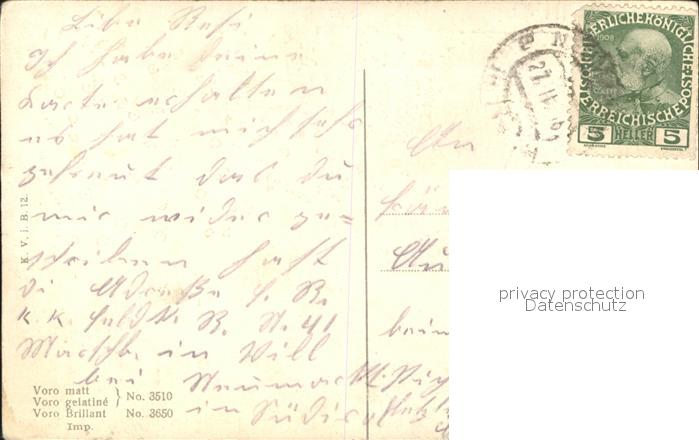 Liebe Resi
Ich habe deine
Karte erhalten
es hat mich sehr
gefreut das du
mir wider ge=
schrieben hast
di Adreße
K. K. Feldk. B. N. 41
Marschb. in Vill
bei Neumarkt
in Südtirol
An
beim
K. V. i. B. 12.
Voro matt
Voro gelatiné } No. 3510
Voro Brillant No. 3650
Imp.
27. II
KAISERLICHE KÖNIGLICHE
ÖSTERREICHISCHE POST
1908
5 HELLER 5
privacy protection
Datenschutz